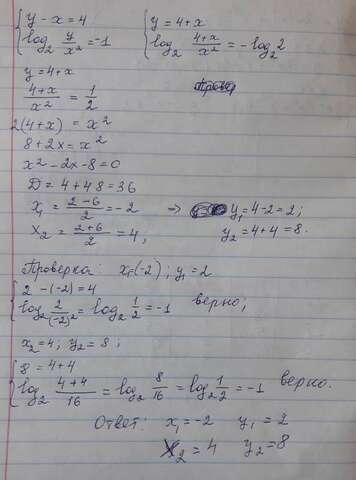 { y - x = 4
{ log₂ y/x² = -1
{ y = 4 + x
{ log₂ (4+x)/x² = -log₂ 2
y = 4 + x
(4+x)/x² = 1/2
2(4+x) = x²
8 + 2x = x²
x² - 2x - 8 = 0
D = 4 + 4·8 = 36
x₁ = (2-6)/2 = -2 ⇒ y₁ = 4-2 = 2;
x₂ = (2+6)/2 = 4; y₂ = 4+4 = 8.
Проверка: x₁ = (-2); y₁ = 2
{ 2 - (-2) = 4
{ log₂ 2/(-2)² = log₂ 1/2 = -1 верно;
x₂ = 4; y₂ = 8;
{ 8 = 4 + 4
{ log₂ (4+4)/16 = log₂ 8/16 = log₂ 1/2 = -1 верно.
Ответ: x₁ = -2 y₁ = 2
x₂ = 4 y₂ = 8